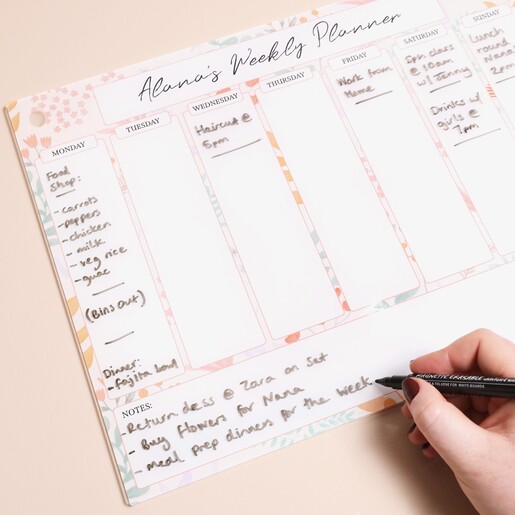 Alana's Weekly Planner
MONDAY
Food
Shop:
- carrots
- peppers
- chicken
- milk
- veg rice
- guac
(Bins Out)
Dinner:
- fajita bowl
TUESDAY
WEDNESDAY
Haircut @
5pm
THURSDAY
FRIDAY
Work from
Home
SATURDAY
Spin class
@ 10am
w/ Jenny
Drinks w/
girls @
7pm
SUNDAY
Lunch
round
Nana's
2pm
NOTES:
Return dress @ Zara on Sat
- Buy flowers for Nana
- Meal prep dinners for the week
MAGNETIC ERASABLE